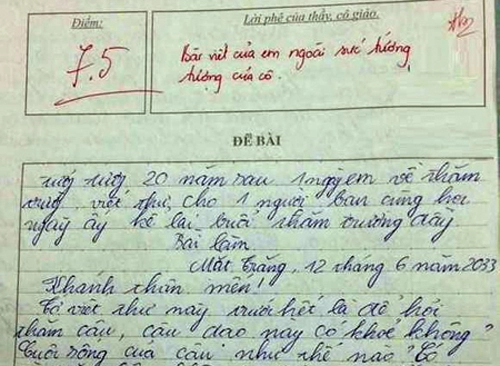 Điểm:
Lời phê của thầy, cô giáo.
7.5
Bài viết của em ngoài sức tưởng
tượng của cô.
ĐỀ BÀI
20 năm sau 1 ngày em về thăm
trường viết thư cho 1 người bạn cùng học
ngày ấy kể lại buổi thăm trường đầy
Bài làm
Mặt Trăng, 12 tháng 6 năm 2033
Khanh thân mến!
Tớ viết thư này trước hết là để hỏi
thăm cậu, cậu dạo này có khoẻ không
Cuộc sống của cậu như thế nào Tớ